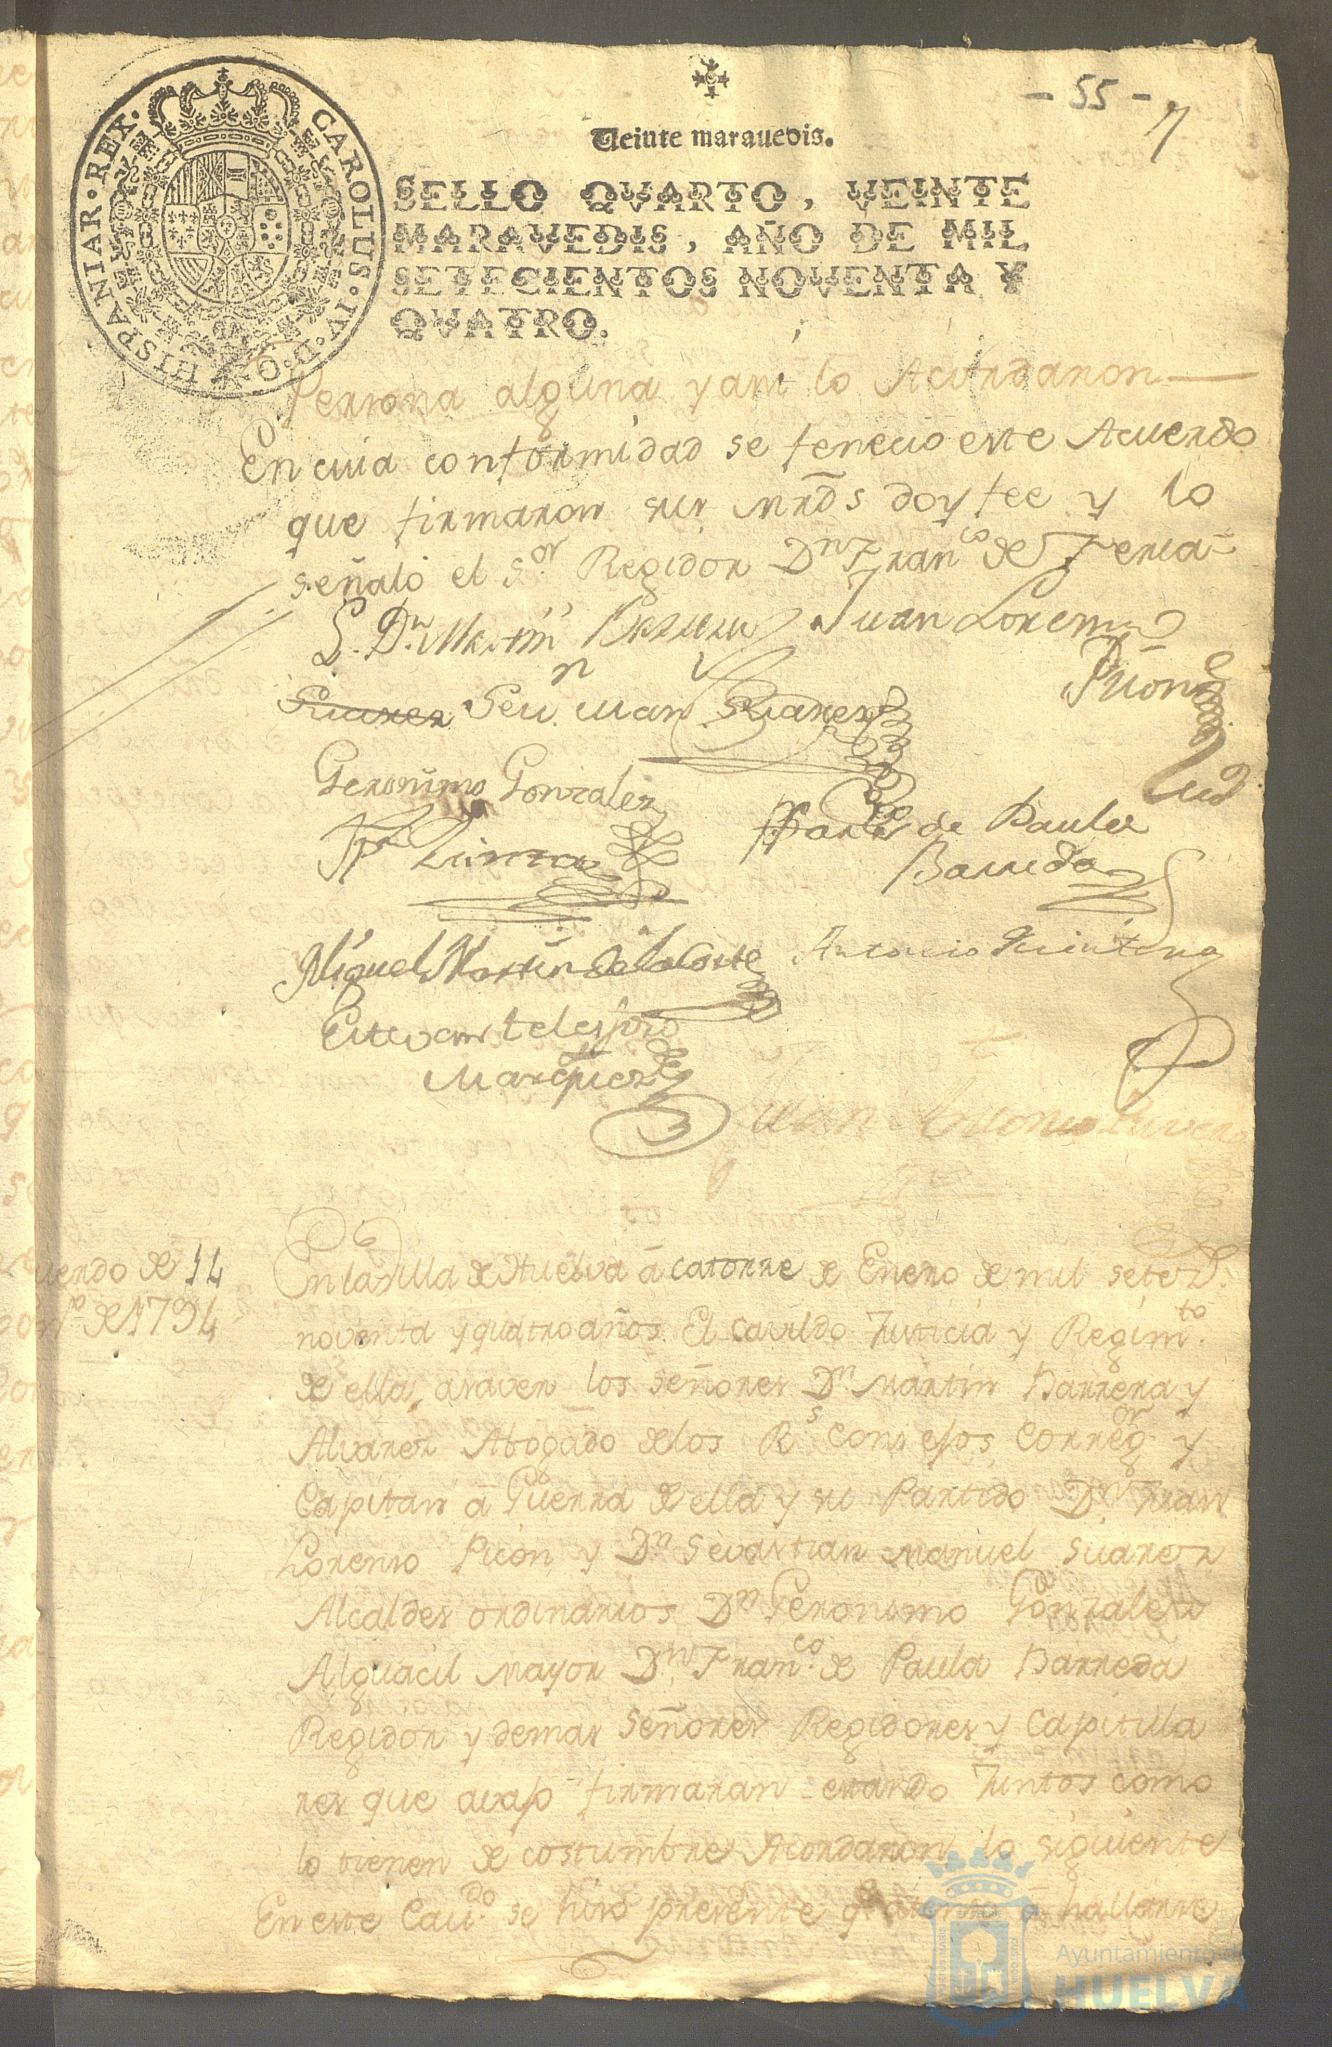 - 55 -
7
Veinte marauedis.
CAROLUS · IV · D · G · HISPANIAR · REX ·
SELLO QVARTO, VEINTE
MARAVEDIS, AÑO DE MIL
SETECIENTOS NOVENTA Y
QVATRO.
Persona alguna y assi lo Acordaron
En cuia conformidad se fenecio este Acuerdo
que firmaron sus mrds doy fee y lo
señalo el Sor. Regidor Dn Franco de Feria
L. Dn Martin Barrera Juan Lorenzo
Picon
Suarez Sevn. Man Suarez
Geronimo Gonzalez
Franco de Paula
Barreda
Miguel Martin de la Corte Antonio Quintero
Estevan telesforo
Marquez
Juan Antonio Rivero
uerdo de 14
de 1794
En la Villa de Huelva á catorze de Enero de mil setezs.
noventa y quatro años. El Cavildo Justicia y Regimto.
de ella, asaver los señores Dn. Martin Barrera y
Alvarez Abogado delos Rs Consejos, Corregor. y
Capitan á Guerra de ella y su Partido Dn Juan
Lorenzo Picon y Dn Sevastian Manuel Suarez
Alcaldes ordinarios Dn Geronimo Gonzalez
Alguacil mayor Dn. Franco. de Paula Barreda
Regidor y demas Señores Regidores y Capitula
res que avajo firmaran estando Juntos como
lo tienen de costumbre Acordaron lo siguiente
En este Cavdo. se hizo presente qe atento á hallarse
Ayuntamiento de
HUELVA